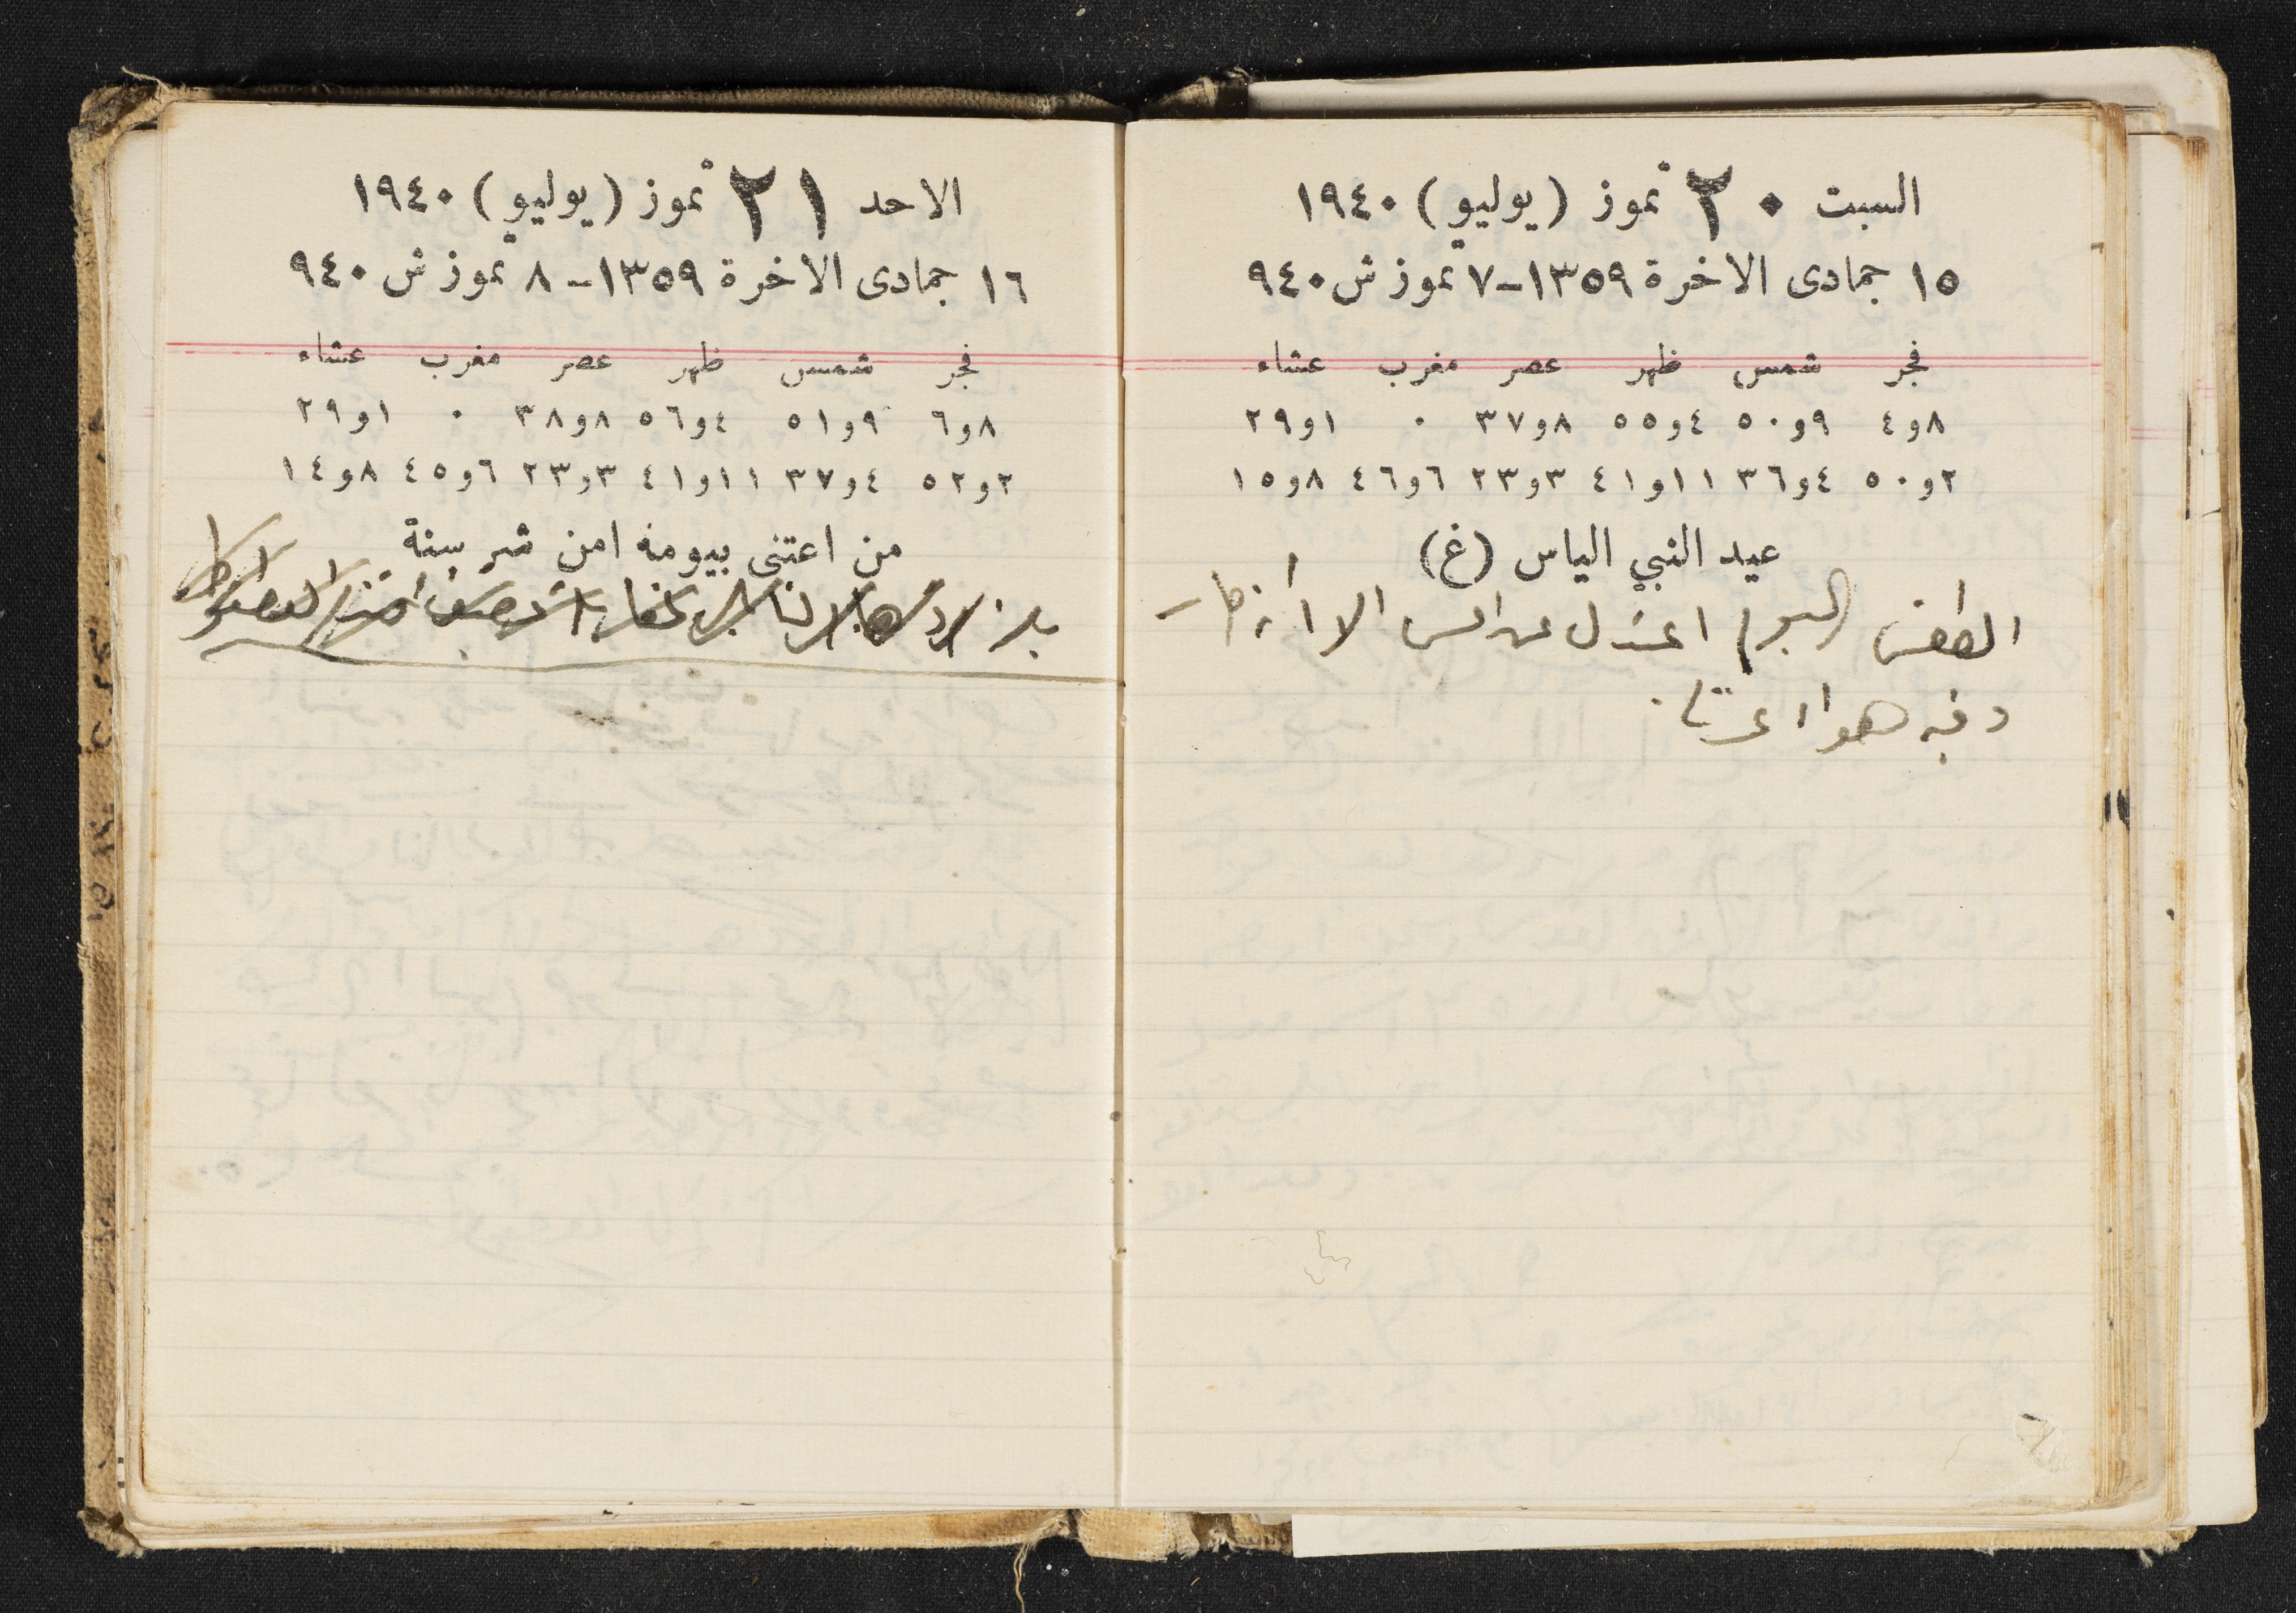 السبت ٢٠ تموز (يوليو) ١٩٤٠
١٥ جمادى الاخرة ١٣٥٩-٧ تموز ش ٩٤٠
فجر شمس ظهر عصر مغرب عشاء
٨و٤ ٩و٥٠ ٤و٥٥ ٨و٣٧ ٠ ١و٢٩
٢و٥٠ ٤و٣٦ ١١و٤١ ٣و٢٣ ٦و٤٦ ٨و١٥
عيد النبي الياس (غ)
الطقس اليوم اعتدل عن امس الا أنه حار
وفيه هواء
الاحد ٢١ تموز (يوليو) ١٩٤٠
١٦ جمادى الاخرة ١٣٥٩-٨ تموز ش ٩٤٠
فجر شمس ظهر عصر مغرب عشاء
٨و٦ ٩و٥١ ٤و٥٦ ٨و٣٨ ٠ ١و٢٩
٢و٥٢ ٤و٣٧ ١١و٤١ ٣و٢٣ ٦و٤٥ ٨و١٤
من اعتنى بيومه امن شر سنة